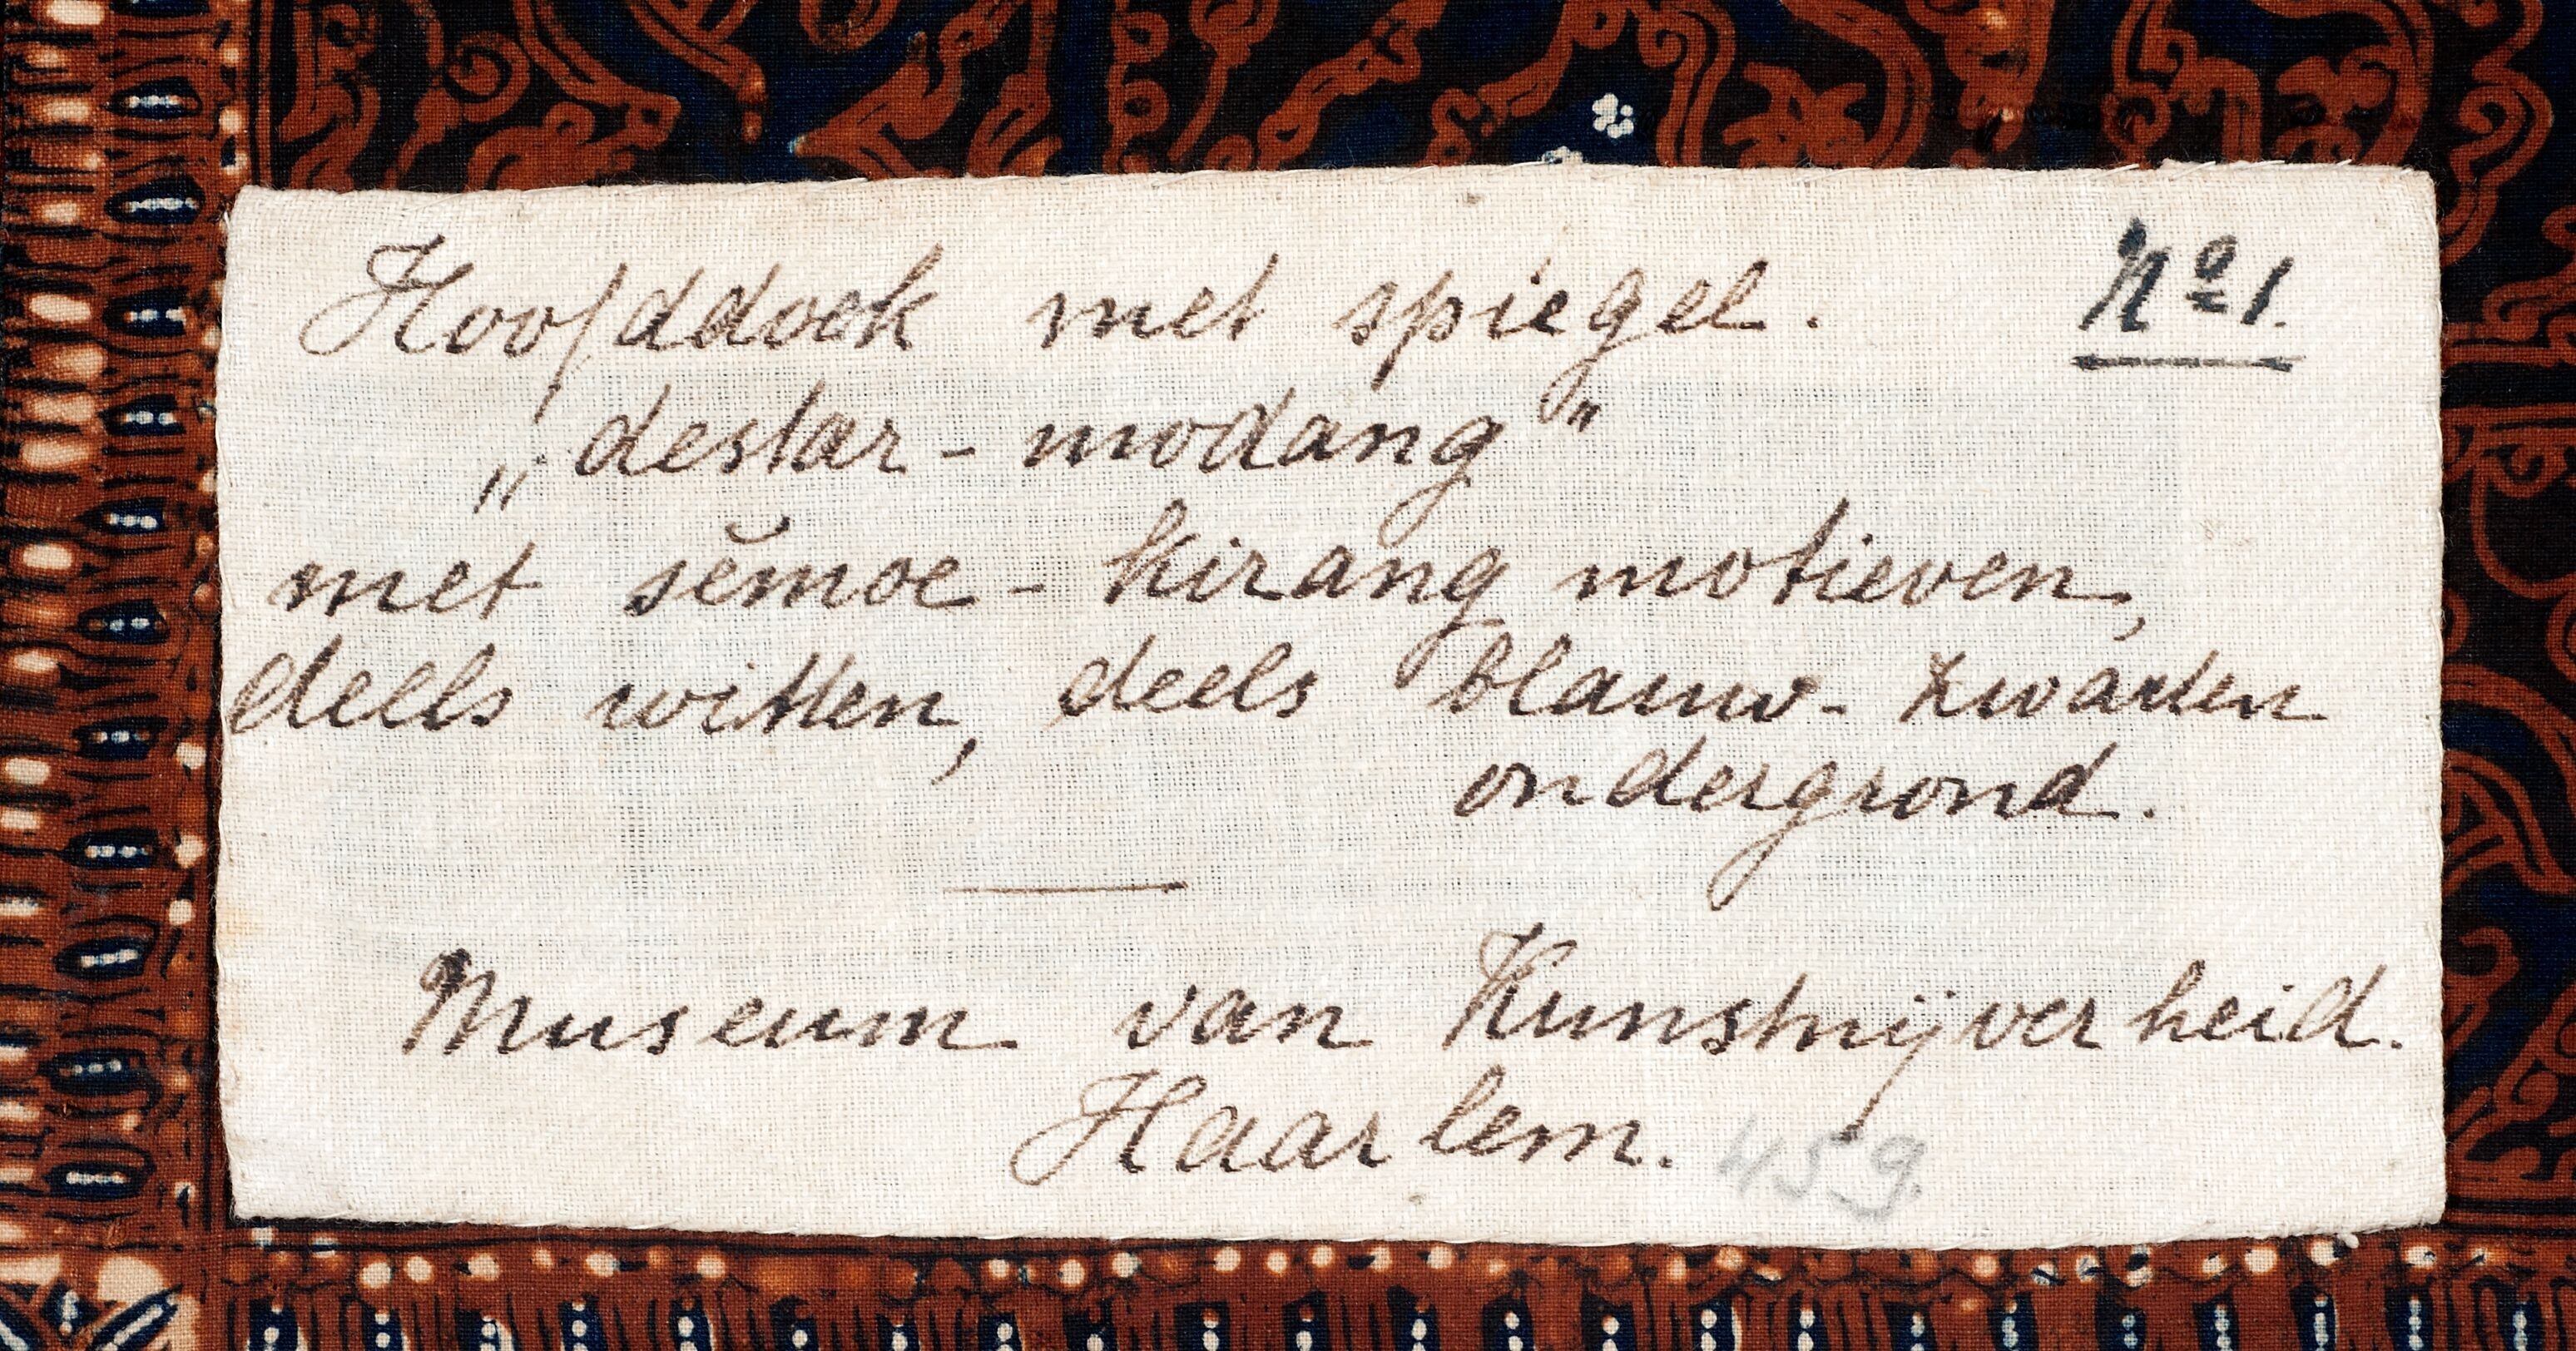 Hoofddoek met spiegel. Nº 1.
„destar - modang"
met sĕmoe - kirang motieven,
deels witten, deels blauw - zwarten
ondergrond.
Museum van Kunstnijverheid.
Haarlem. 459.